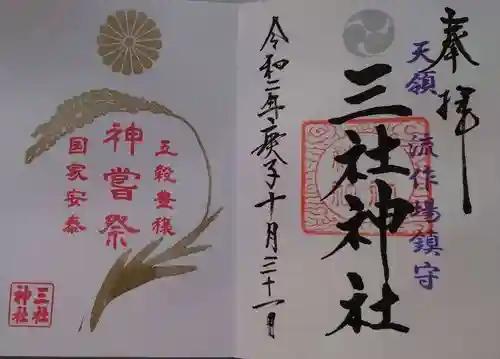 奉拝
天領
流作場鎮守
三社神社
令和二年庚子十月三十一日
五穀豊穣
神嘗祭
国家安泰
三社
神社